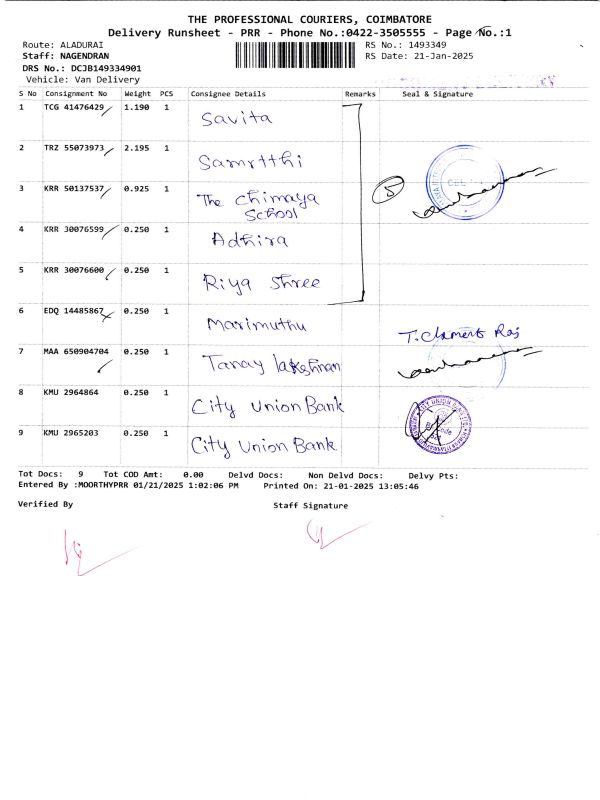 THE PROFESSIONAL COURIERS, COIMBATORE
Delivery Runsheet - PRR - Phone No.:0422-3505555 - Page No.:1
Route: ALADURAI RS No.: 1493349
Staff: NAGENDRAN RS Date: 21-Jan-2025
DRS No.: DCJB149334901
Vehicle: Van Delivery
S No Consignment No Weight PCS Consignee Details Remarks Seal & Signature
1 TCG 41476429 1.190 1 Savita
2 TRZ 55073973 2.195 1 Samrtthi
3 KRR 50137537 0.925 1 The Chimaya School 5
4 KRR 30076599 0.250 1 Adhira
5 KRR 30076600 0.250 1 Riya Shree
6 EDQ 14485867 0.250 1 Marimuthu T. Clament Raj
7 MAA 650904704 0.250 1 Tanay lakshman
8 KMU 2964864 0.250 1 City Union Bank
9 KMU 2965203 0.250 1 City Union Bank
Tot Docs: 9 Tot COD Amt: 0.00 Delvd Docs: Non Delvd Docs: Delvy Pts:
Entered By :MOORTHYPRR 01/21/2025 1:02:06 PM Printed On: 21-01-2025 13:05:46
Verified By Staff Signature